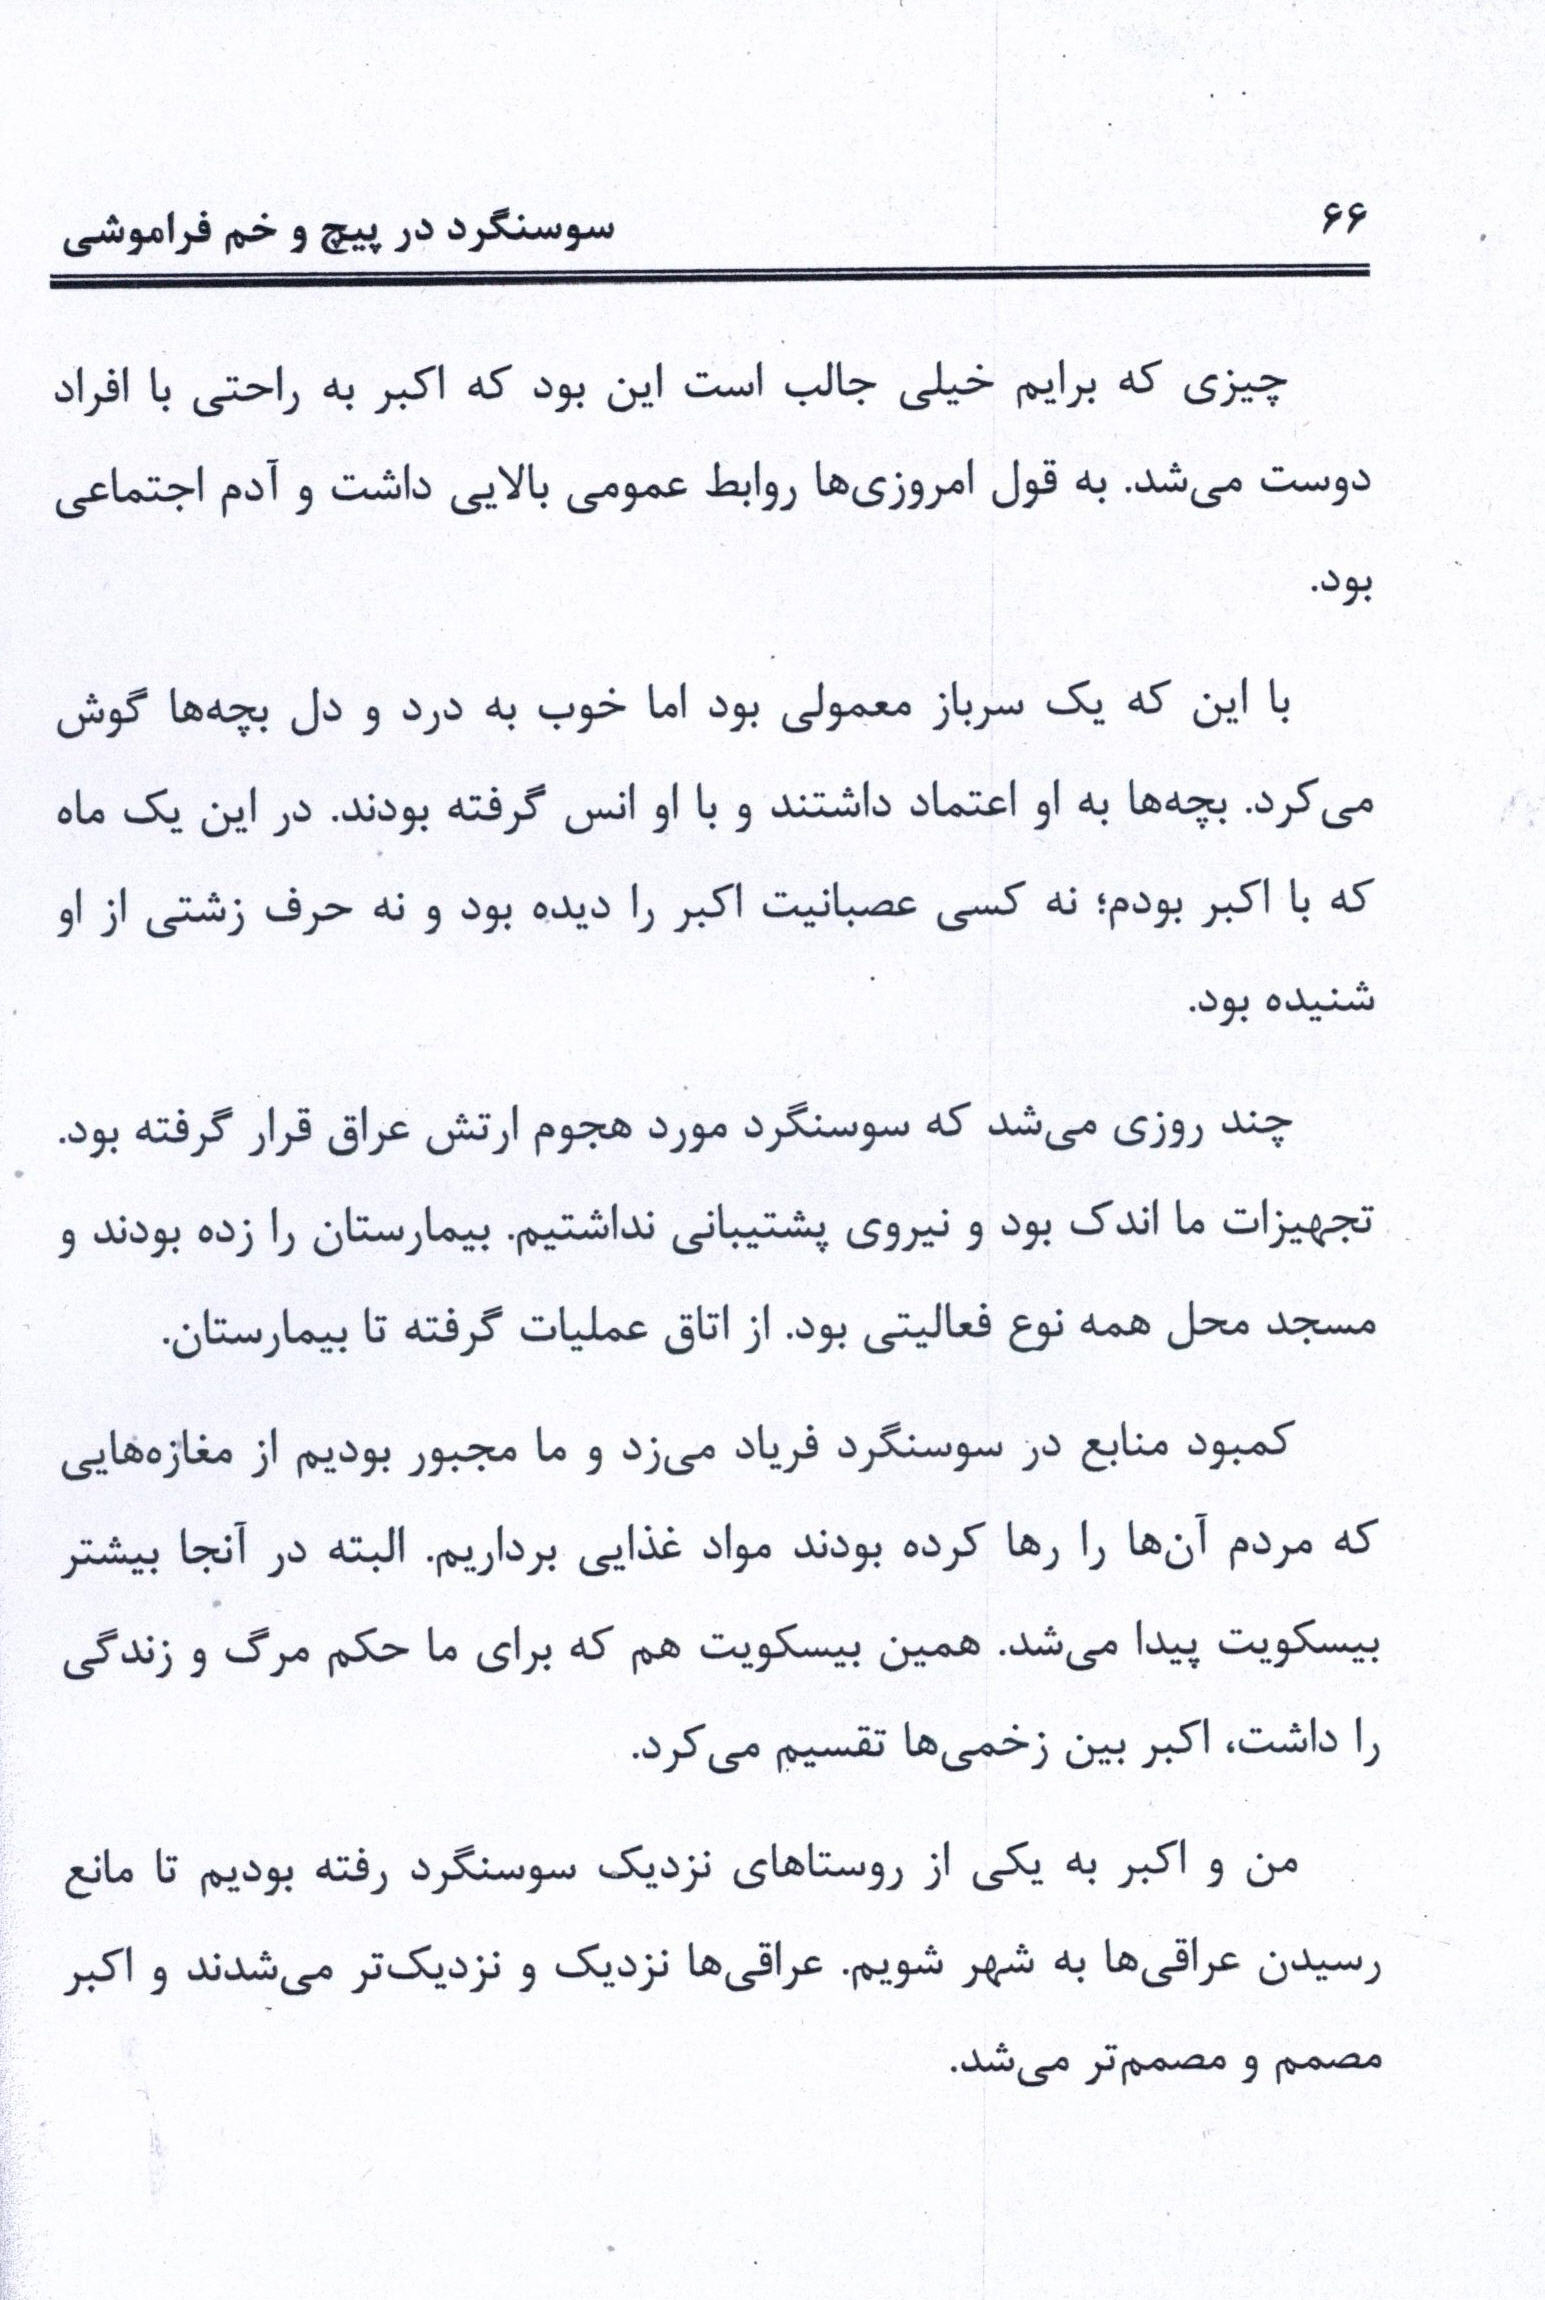 ۶۶
سوسنگرد در پیچ و خم فراموشی
چیزی که برایم خیلی جالب است این بود که اکبر به راحتی با افراد
دوست می‌شد. به قول امروزی‌ها روابط عمومی بالایی داشت و آدم اجتماعی
بود.
با این که یک سرباز معمولی بود اما خوب به درد و دل بچه‌ها گوش
می‌کرد. بچه‌ها به او اعتماد داشتند و با او انس گرفته بودند. در این یک ماه
که با اکبر بودم؛ نه کسی عصبانیت اکبر را دیده بود و نه حرف زشتی از او
شنیده بود.
چند روزی می‌شد که سوسنگرد مورد هجوم ارتش عراق قرار گرفته بود.
تجهیزات ما اندک بود و نیروی پشتیبانی نداشتیم. بیمارستان را زده بودند و
مسجد محل همه نوع فعالیتی بود. از اتاق عملیات گرفته تا بیمارستان.
کمبود منابع در سوسنگرد فریاد می‌زد و ما مجبور بودیم از مغازه‌هایی
که مردم آن‌ها را رها کرده بودند مواد غذایی برداریم. البته در آنجا بیشتر
بیسکویت پیدا می‌شد. همین بیسکویت هم که برای ما حکم مرگ و زندگی
را داشت، اکبر بین زخمی‌ها تقسیم می‌کرد.
من و اکبر به یکی از روستاهای نزدیک سوسنگرد رفته بودیم تا مانع
رسیدن عراقی‌ها به شهر شویم. عراقی‌ها نزدیک و نزدیک‌تر می‌شدند و اکبر
مصمم و مصمم‌تر می‌شد.